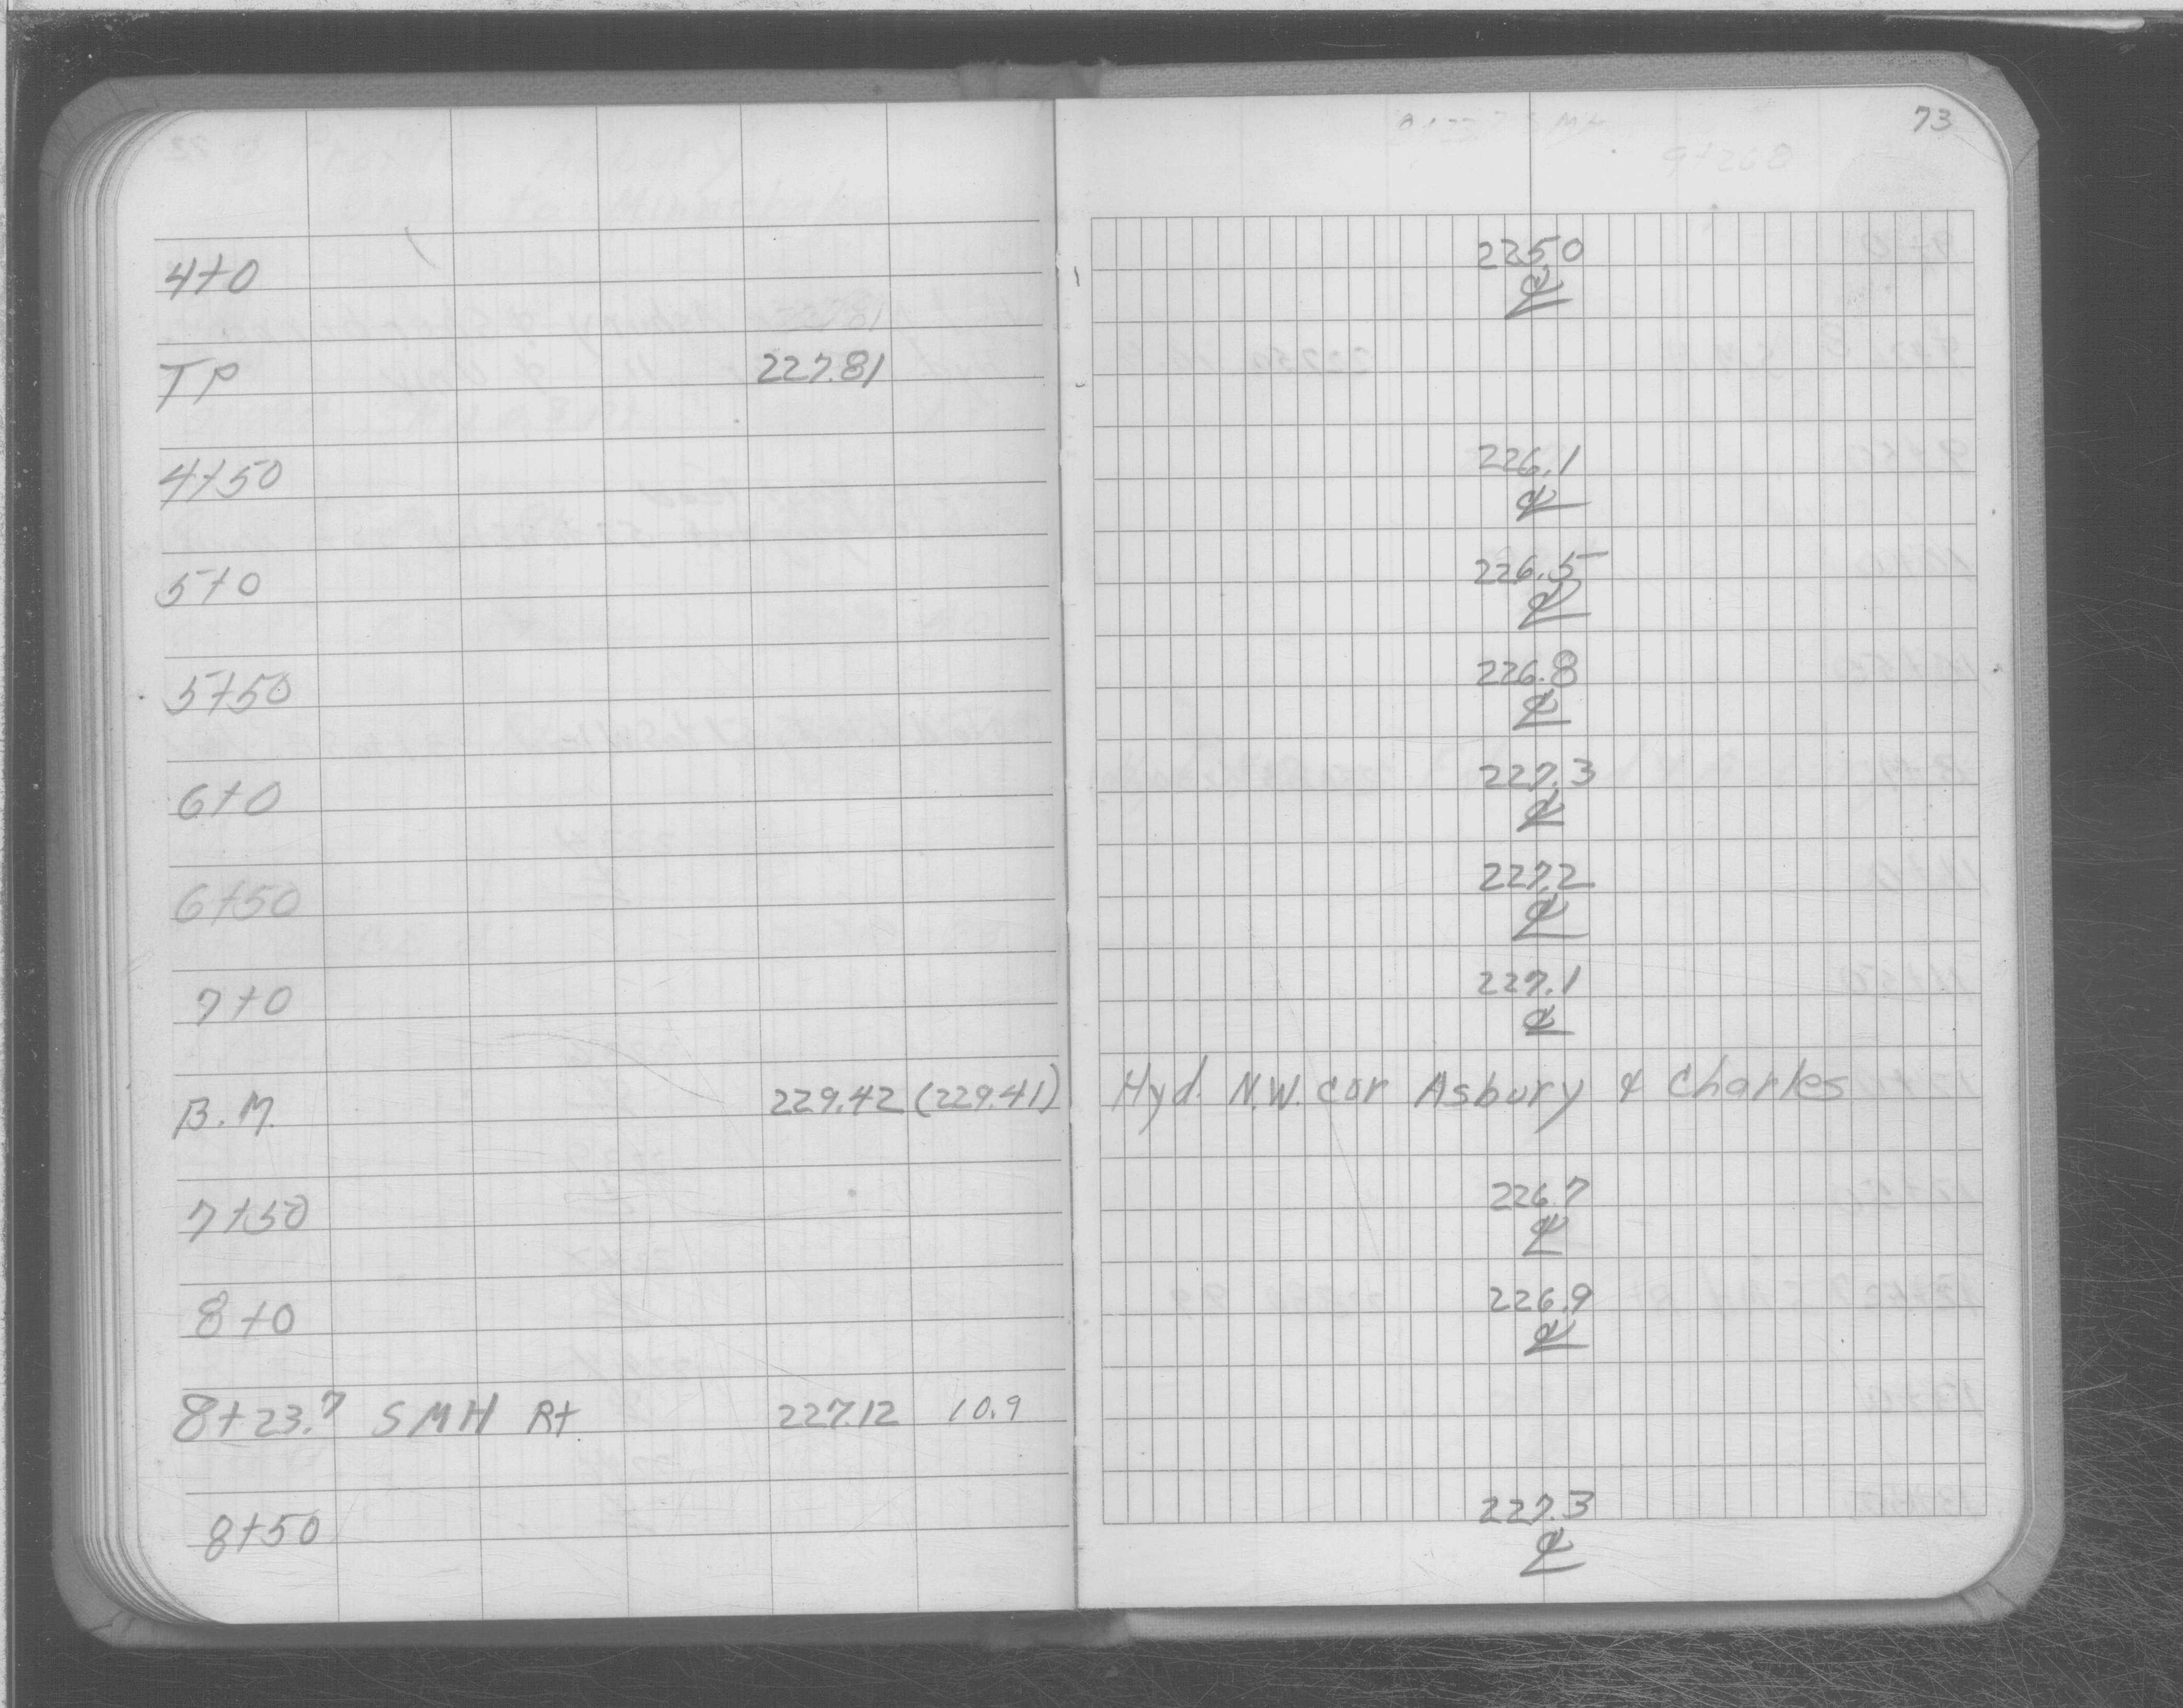 73
4+0 225.0
℄
TP 227.81
4+50 226.1
℄
5+0 226.5
℄
5+50 226.8
℄
6+0 227.3
℄
6+50 227.2
℄
7+0 227.1
℄
B.M. 229.42 (229.41) Hyd. N.W. cor Asbury & Charles
7+50 226.7
℄
8+0 226.9
℄
8+23.7 SMH Rt 227.12 10.9
8+50 227.3
℄